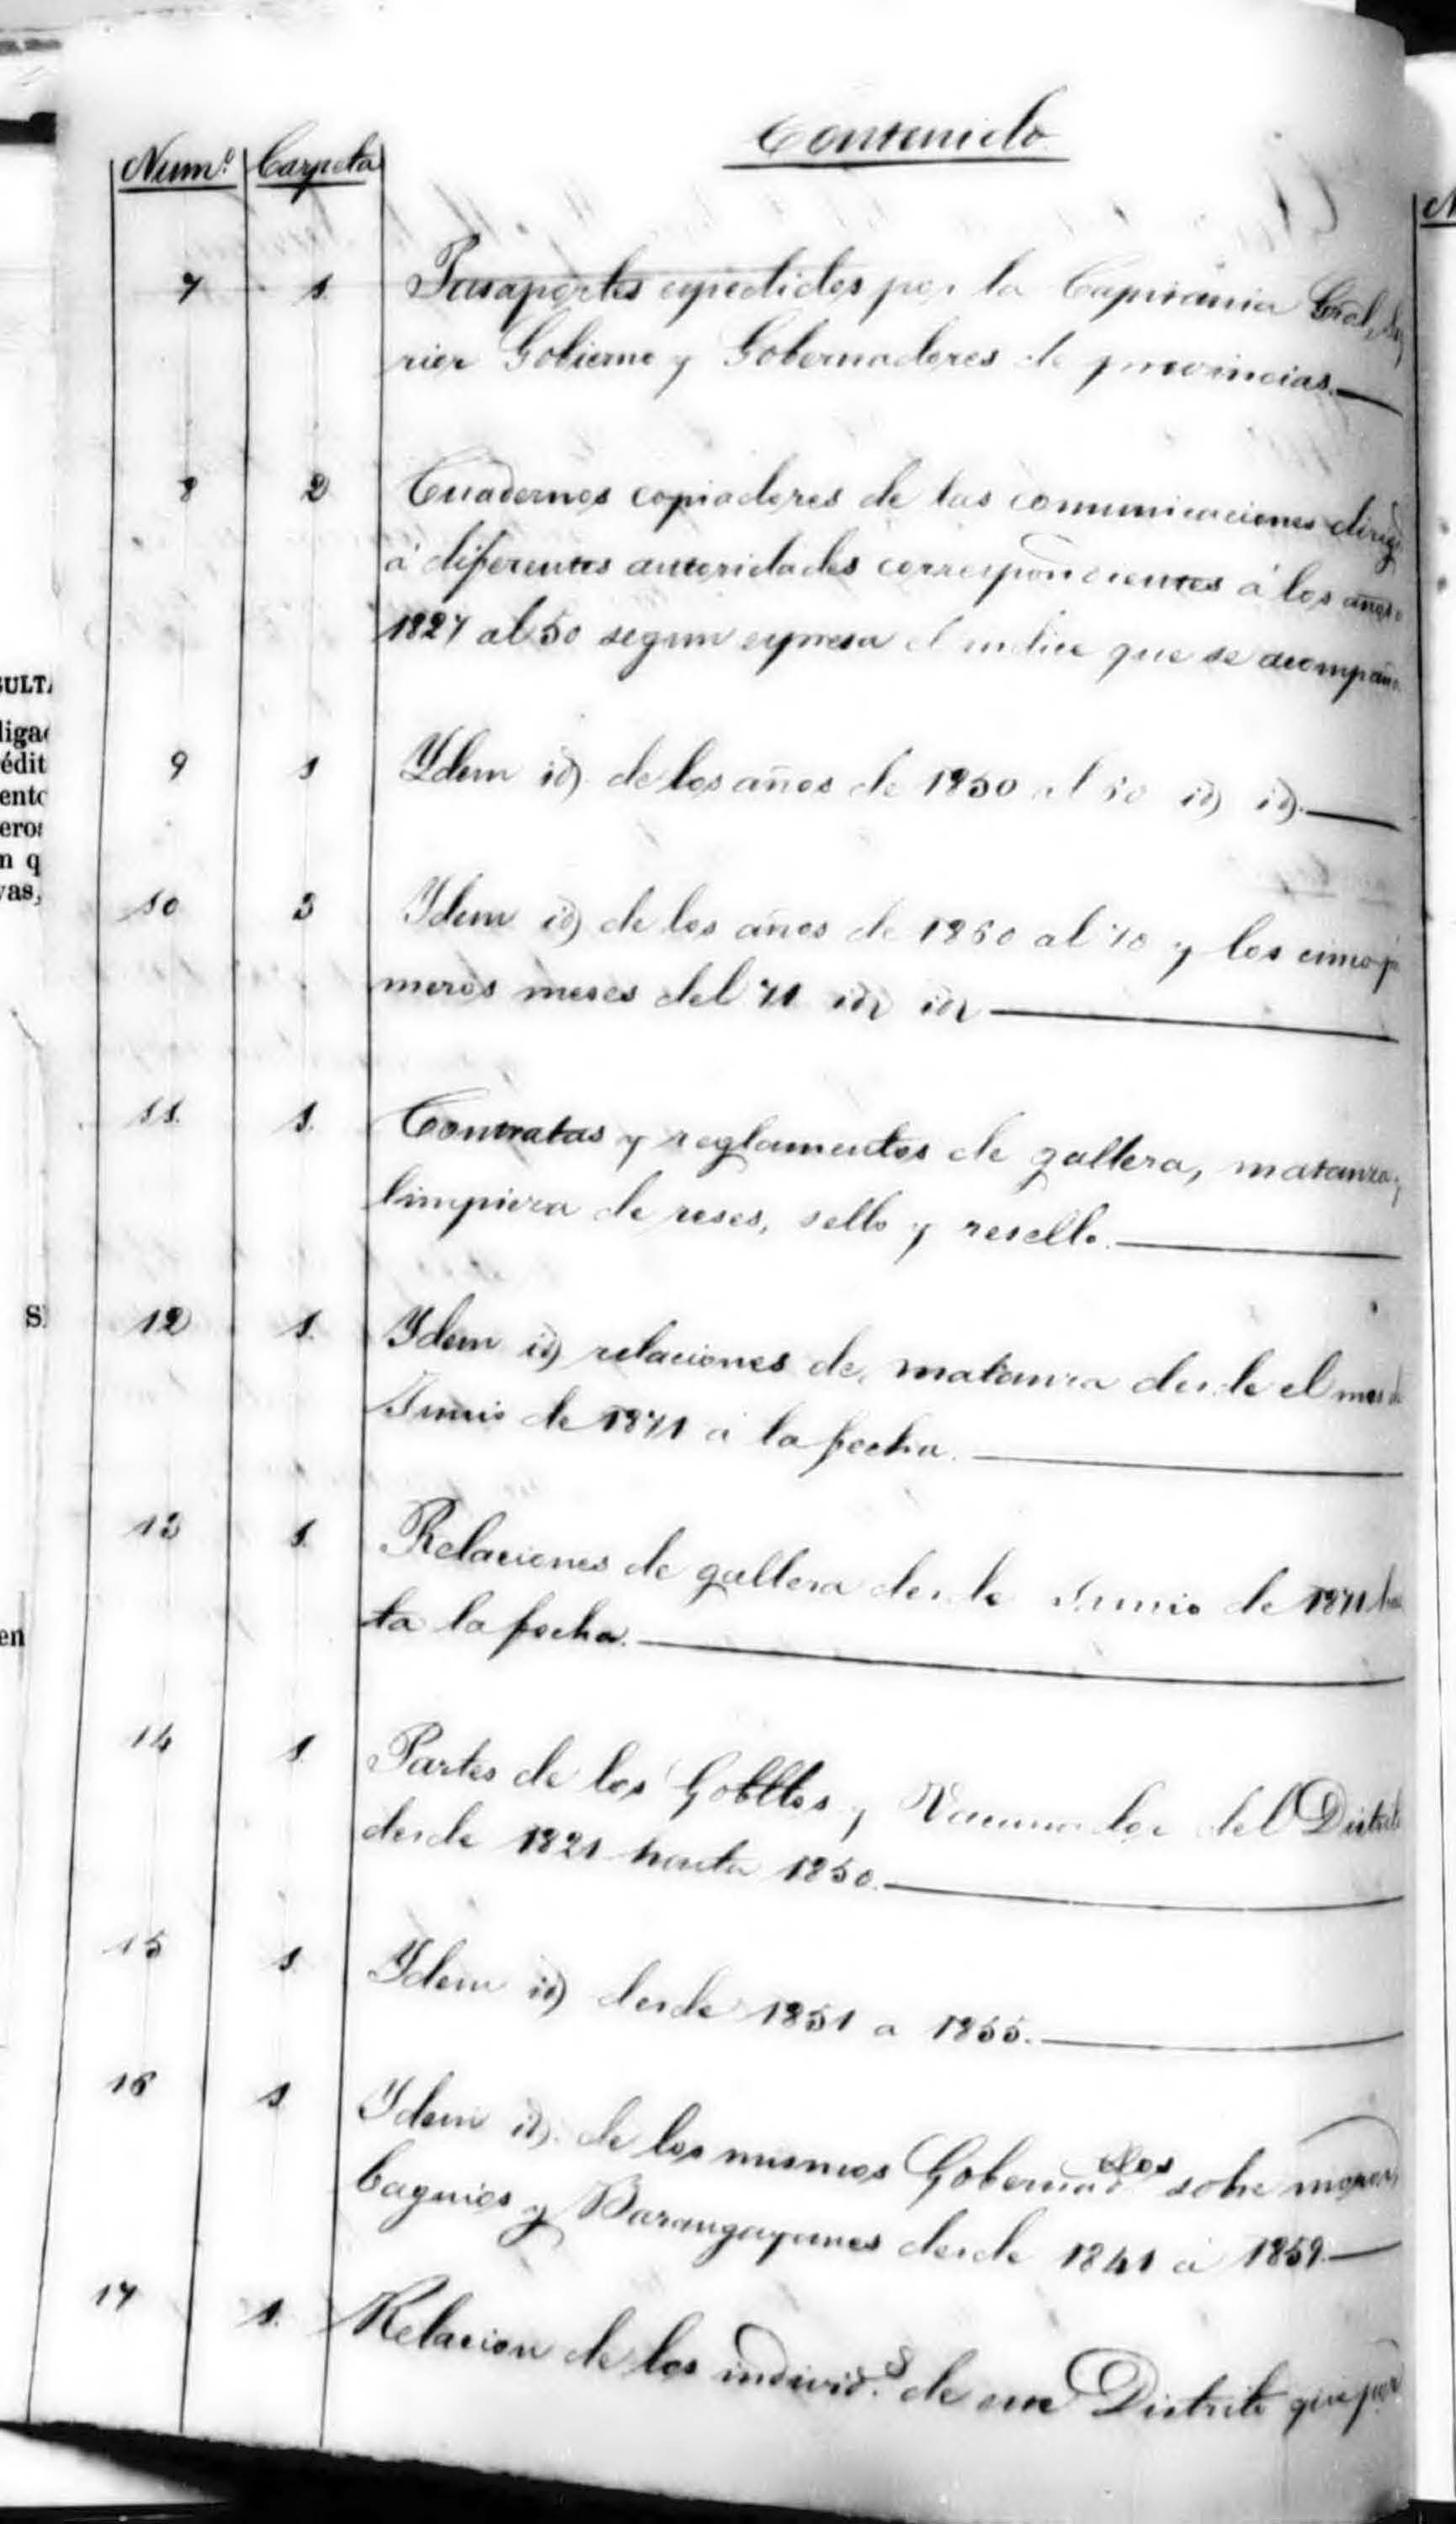 Contenido
Num.º Carpeta
7 1. Pasaportes expedidos por la Capitania Gral, Su
rior Gobierno y Gobernadores de provincias.
8 2 Cuadernos copiadores de las comunicaciones dirig
á diferentes autoridades correspondientes á los años
1827 al 50 segun expresa el indice que se acompaña
9 1 Ydem id. de los años de 1850 al 60 id id.
10 3 Ydem id de los años de 1860 al 70 y los cinco pri
meros meses del 71 id id
11. 1. Contratas y reglamentos de gallera, matanza y
limpieza de reses, sello y resello.
12 1. Ydem id relaciones de matanza desde el mes de
Junio de 1871 á la fecha.
13 1. Relaciones de gallera desde Junio de 1871 has
ta la fecha.
14 1. Partes de los Gobllos y Vacunador del Distrito
desde 1821 hasta 1850.
15 1 Ydem id desde 1851 a 1855.
16 1 Ydem id. de los mismos Gobernadllos sobre
baguios y Barangayanes desde 1841 á 1859.
17 1. Relacion de los individ.s de este Distrito que por
SULTA
ligac
rédit
ento
eros
n q
vas,
S
en